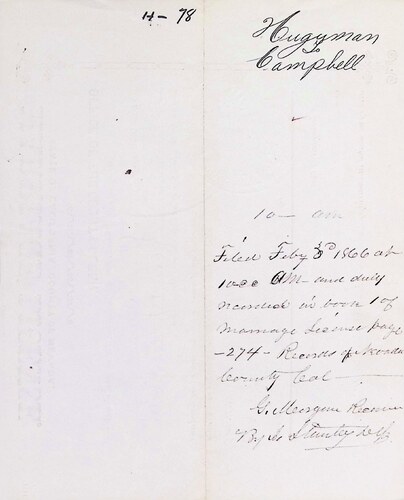 H - 78
Hugyman
to
Campbell
10 - am
Filed Feby 3rd 1866 at
10 00 AM and duly
recorded in book 1 of
Marriage License page
-274- Records of Nevada
County Cal
G. Morgan Recorder
By